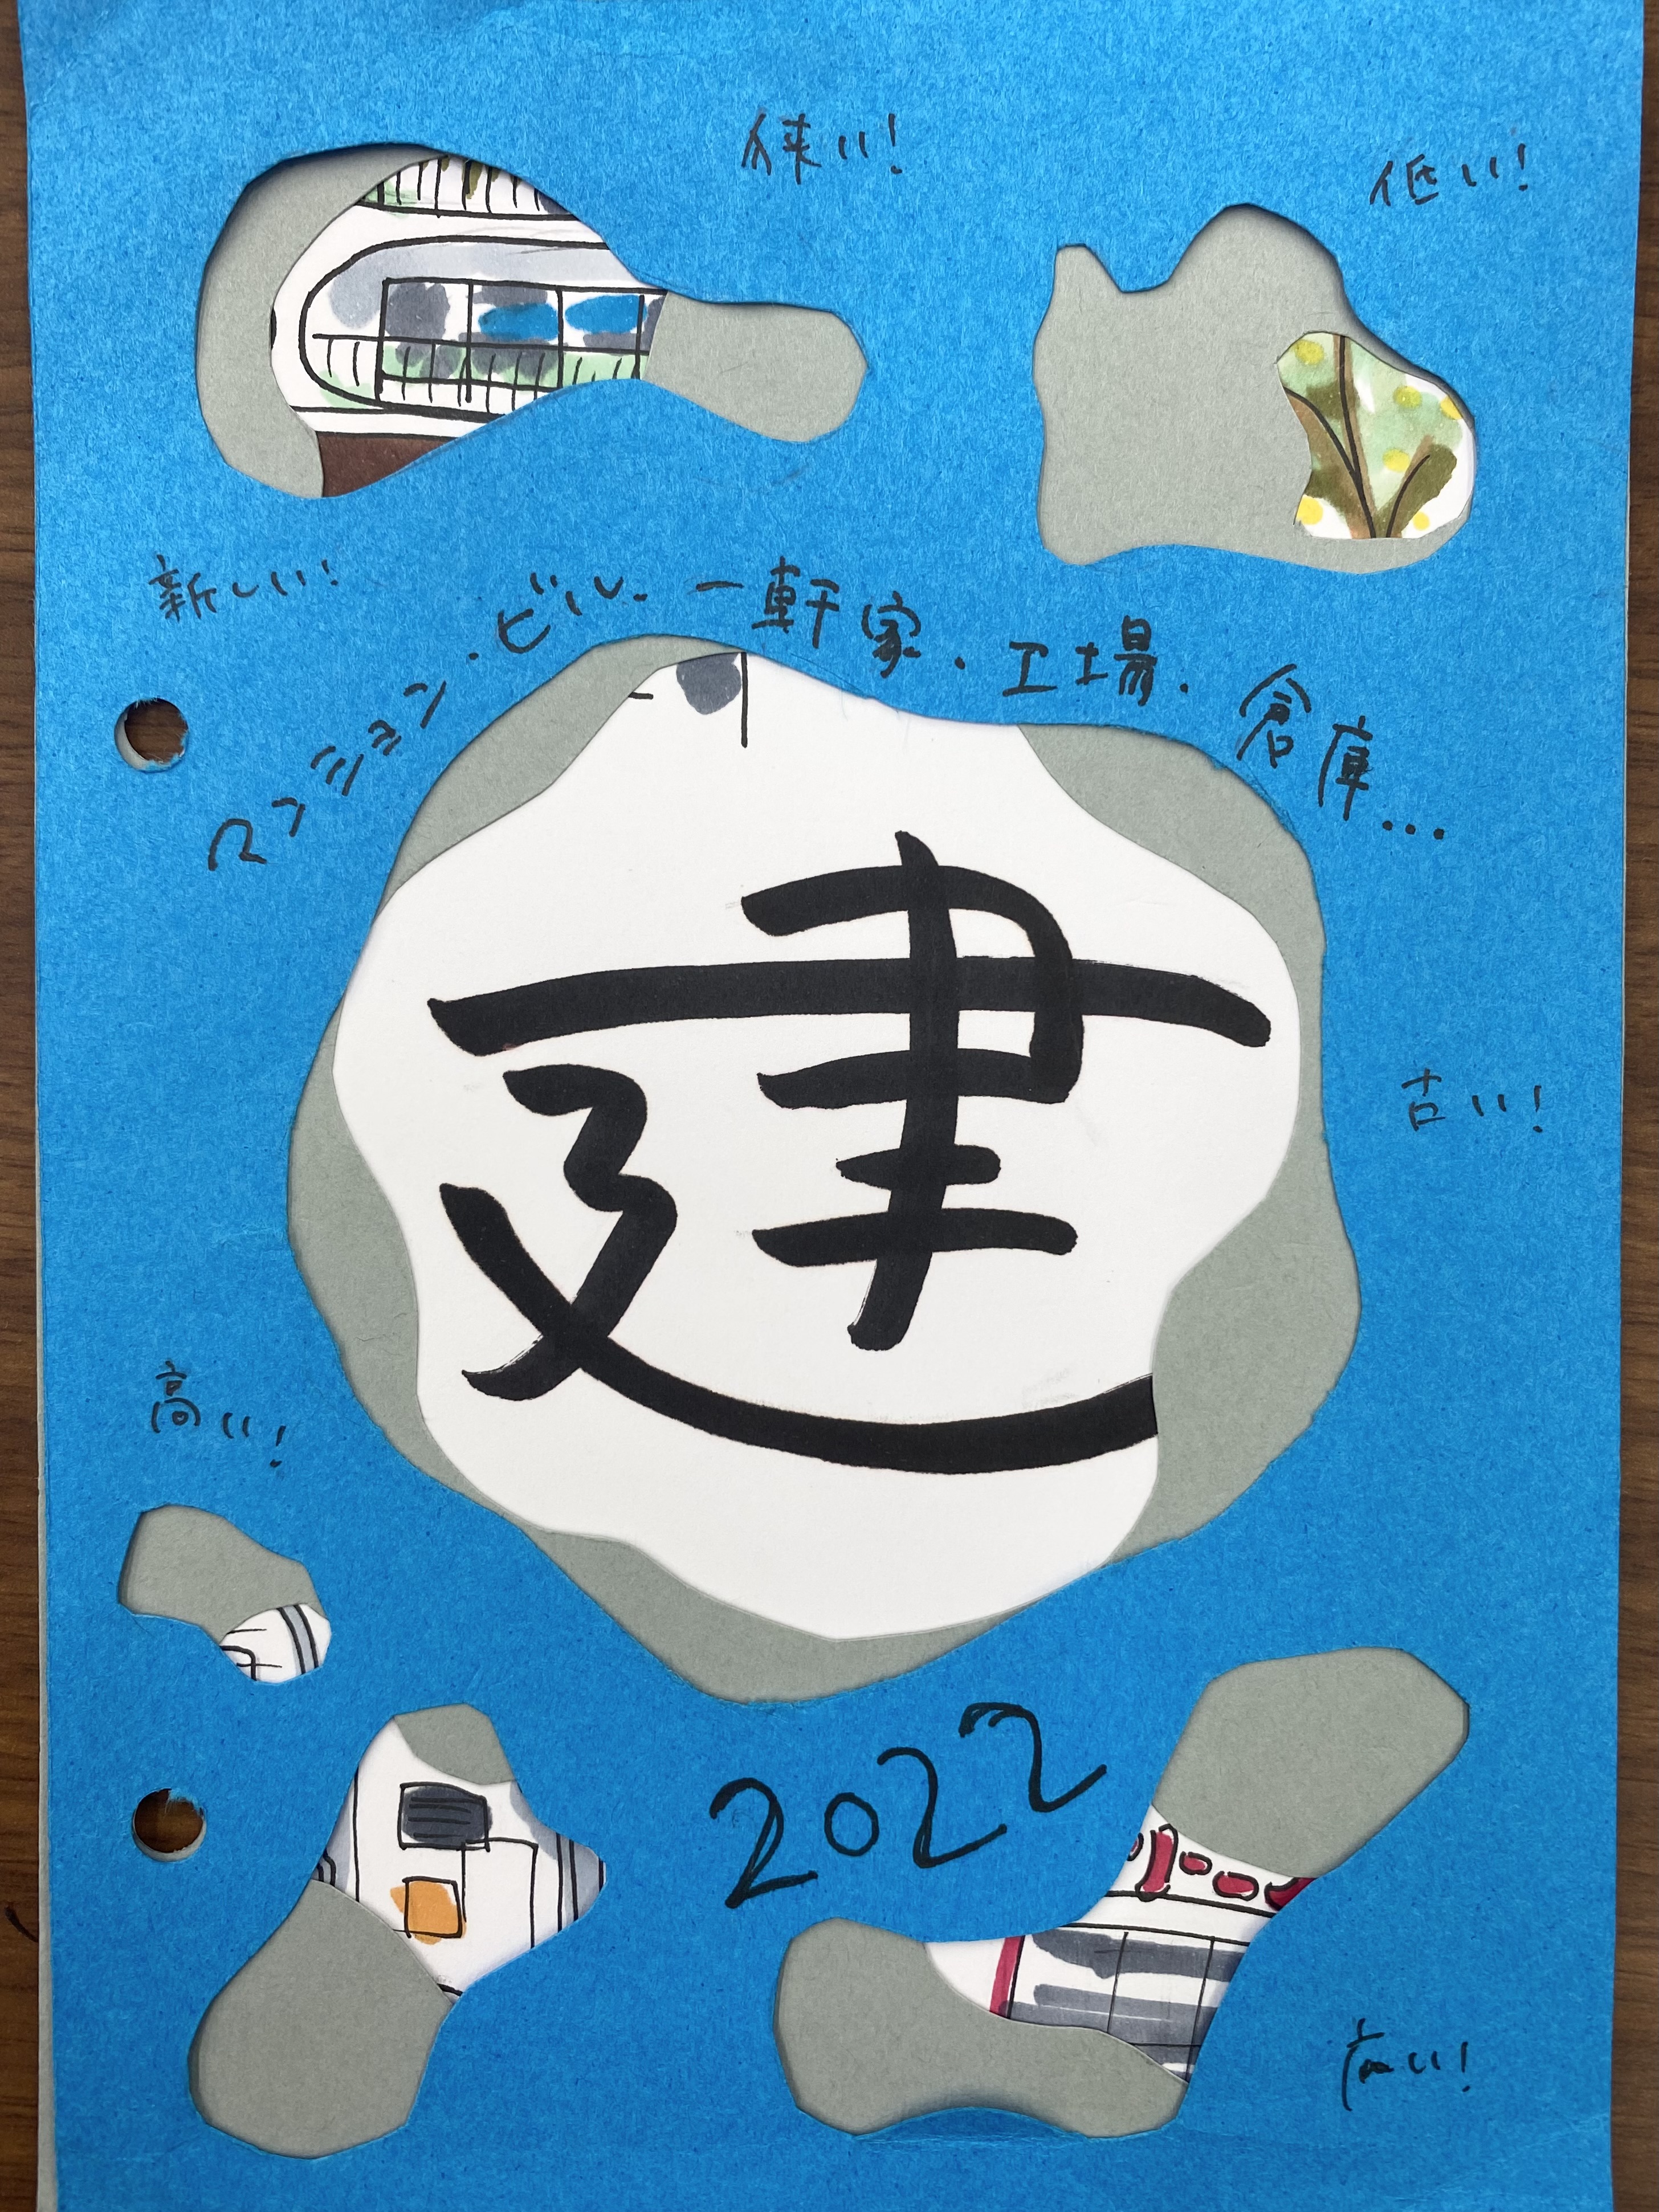 狭い!
低い!
新しい!
マンション・ビル・一軒家・工場・倉庫...
建
古い!
高い!
2022
広い!